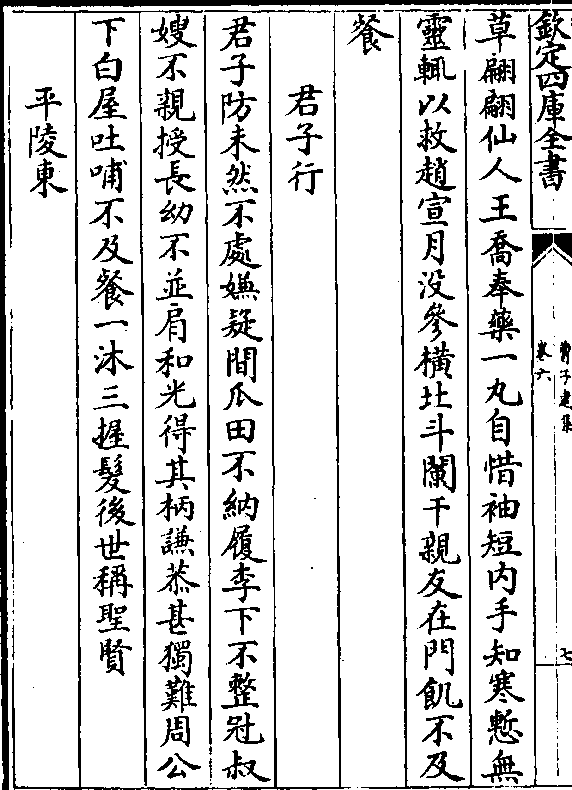 欽定四庫全書
曹子建集
卷六
七
草翩翩仙人王喬奉藥一丸自惜袖短内手知寒慙無
靈輒以救趙宣月没參橫北斗闌干親友在門飢不及
餐
君子行
君子防未然不處嫌疑間瓜田不納履李下不整冠叔
嫂不親授長幼不並肩和光得其柄謙恭甚獨難周公
下白屋吐哺不及餐一沐三握髮後世稱聖賢
平陵東